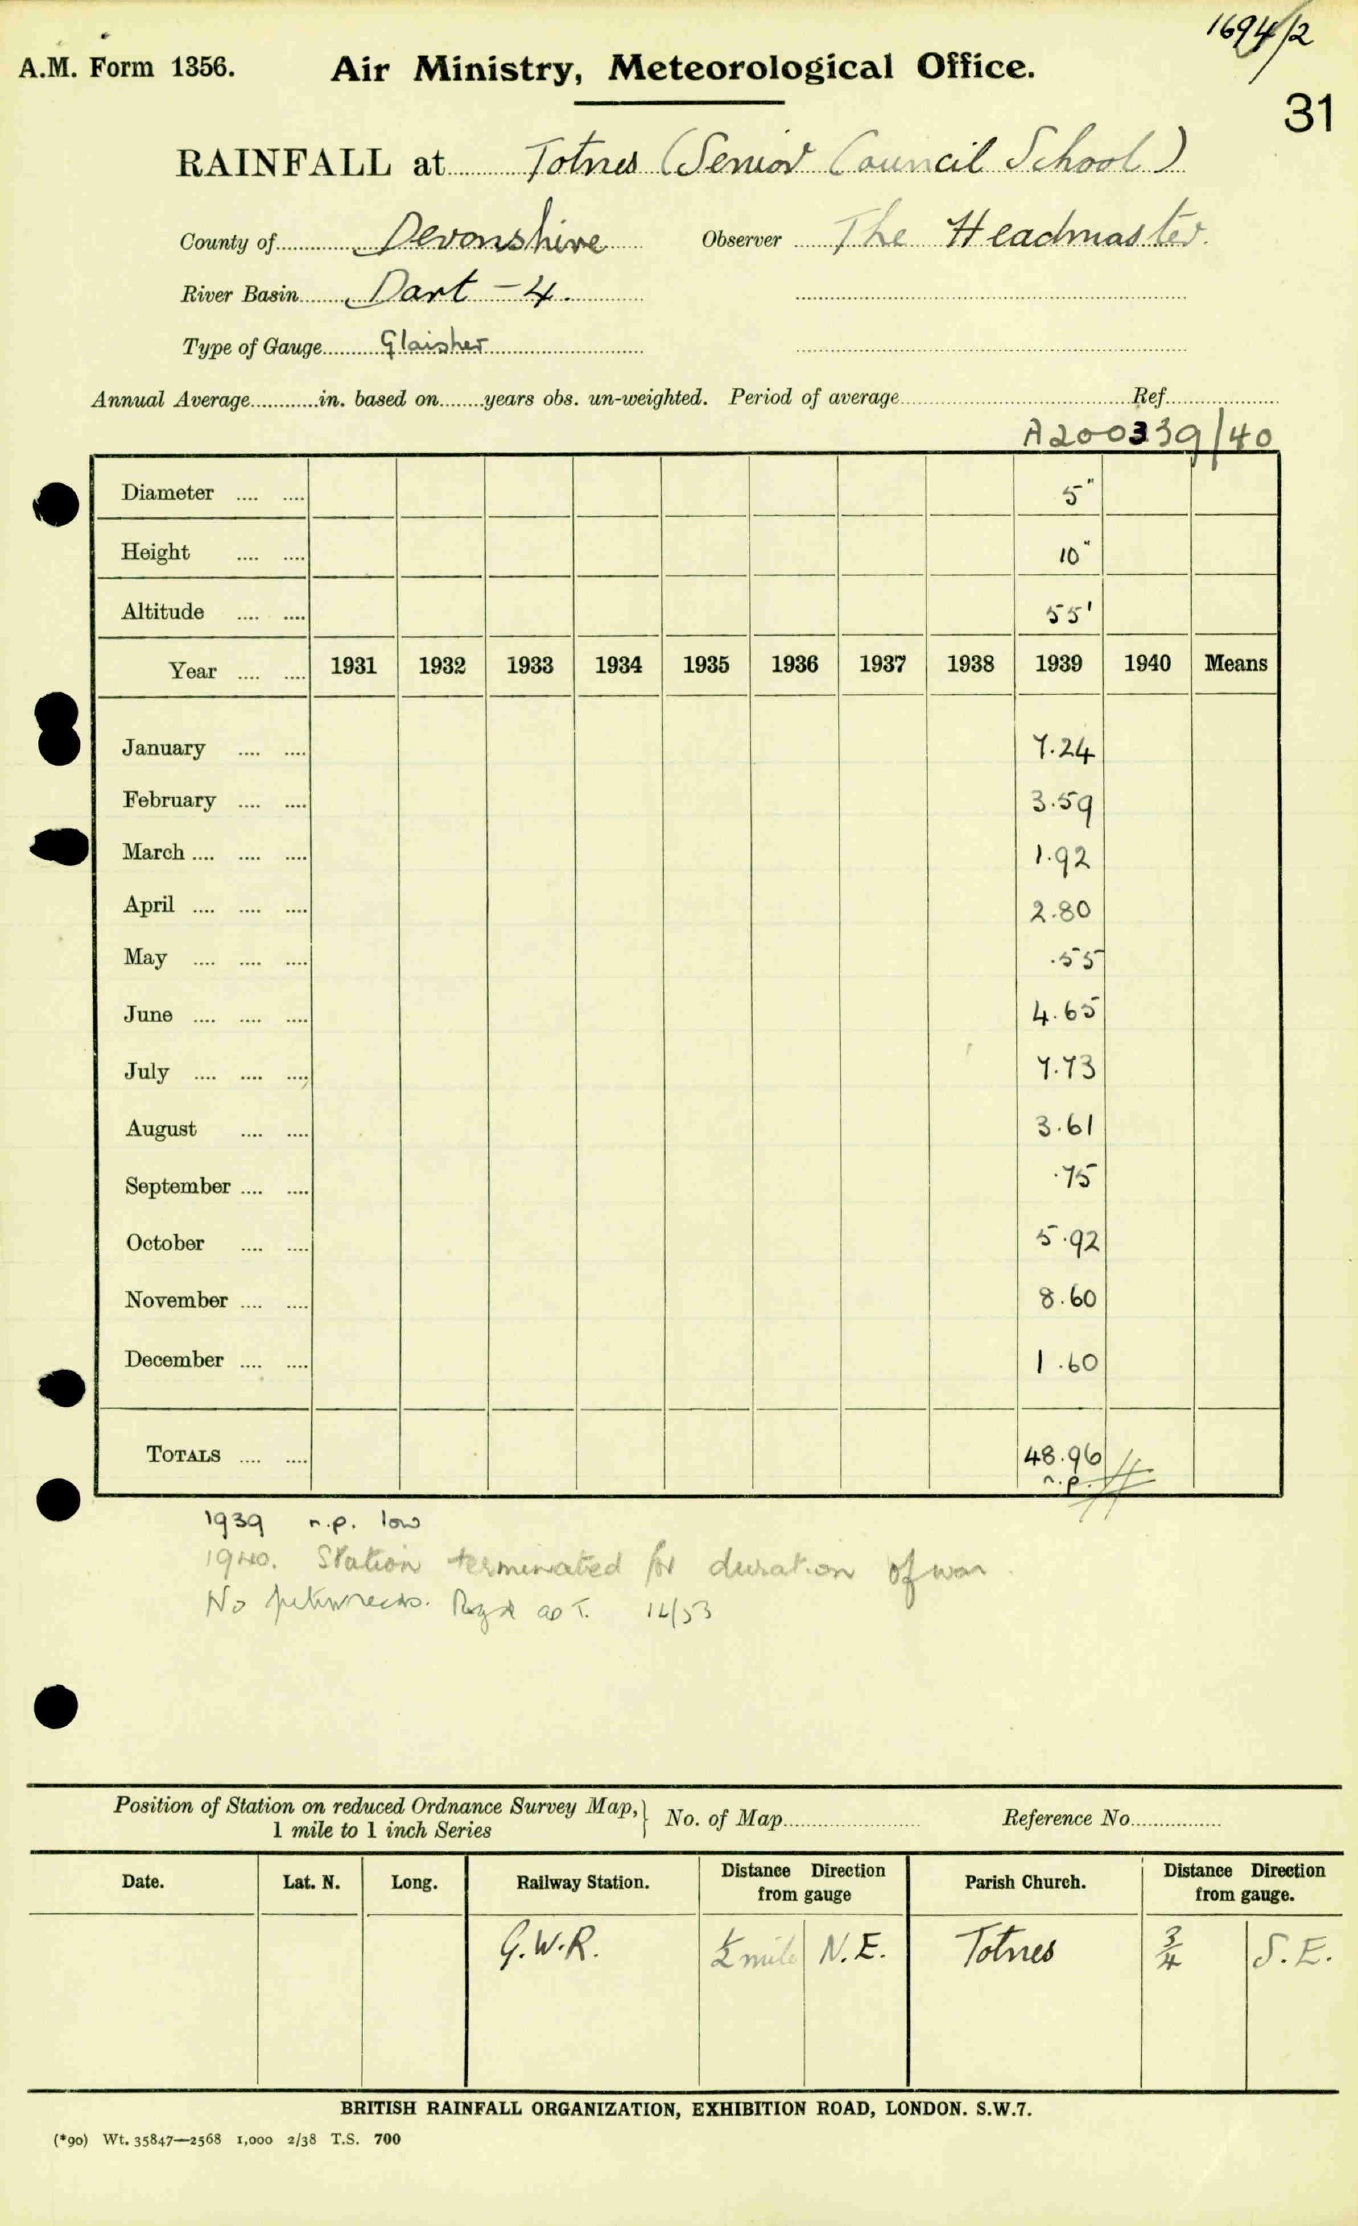 1694/2
A.M. Form 1356. Air Ministry, Meteorological Office.
31
RAINFALL at Totnes (Senior Council School)
County of Devonshire Observer The Headmaster.
River Basin Dart - 4.
Type of Gauge Glaisher
Annual Average in. based on years obs. un-weighted. Period of average Ref.
A200339/40
Diameter 5"
Height 10"
Altitude 55'
Year 1931 1932 1933 1934 1935 1936 1937 1938 1939 1940 Means
January 7.24
February 3.59
March 1.92
April 2.80
May .55
June 4.65
July 7.73
August 3.61
September .75
October 5.92
November 8.60
December 1.60
TOTALS 48.96
n.p.
1939 n.p. low
1940. Station terminated for duration of war.
No as T. 12/53
Position of Station on reduced Ordnance Survey Map, } No. of Map Reference No.
1 mile to 1 inch Series
Date. Lat. N. Long. Railway Station. Distance Direction from gauge Parish Church. Distance Direction from gauge.
G.W.R. ½ mile N.E. Totnes ¾ S.E.
BRITISH RAINFALL ORGANIZATION, EXHIBITION ROAD, LONDON. S.W.7.
(*90) Wt. 35847—2568 1,000 2/38 T.S. 700